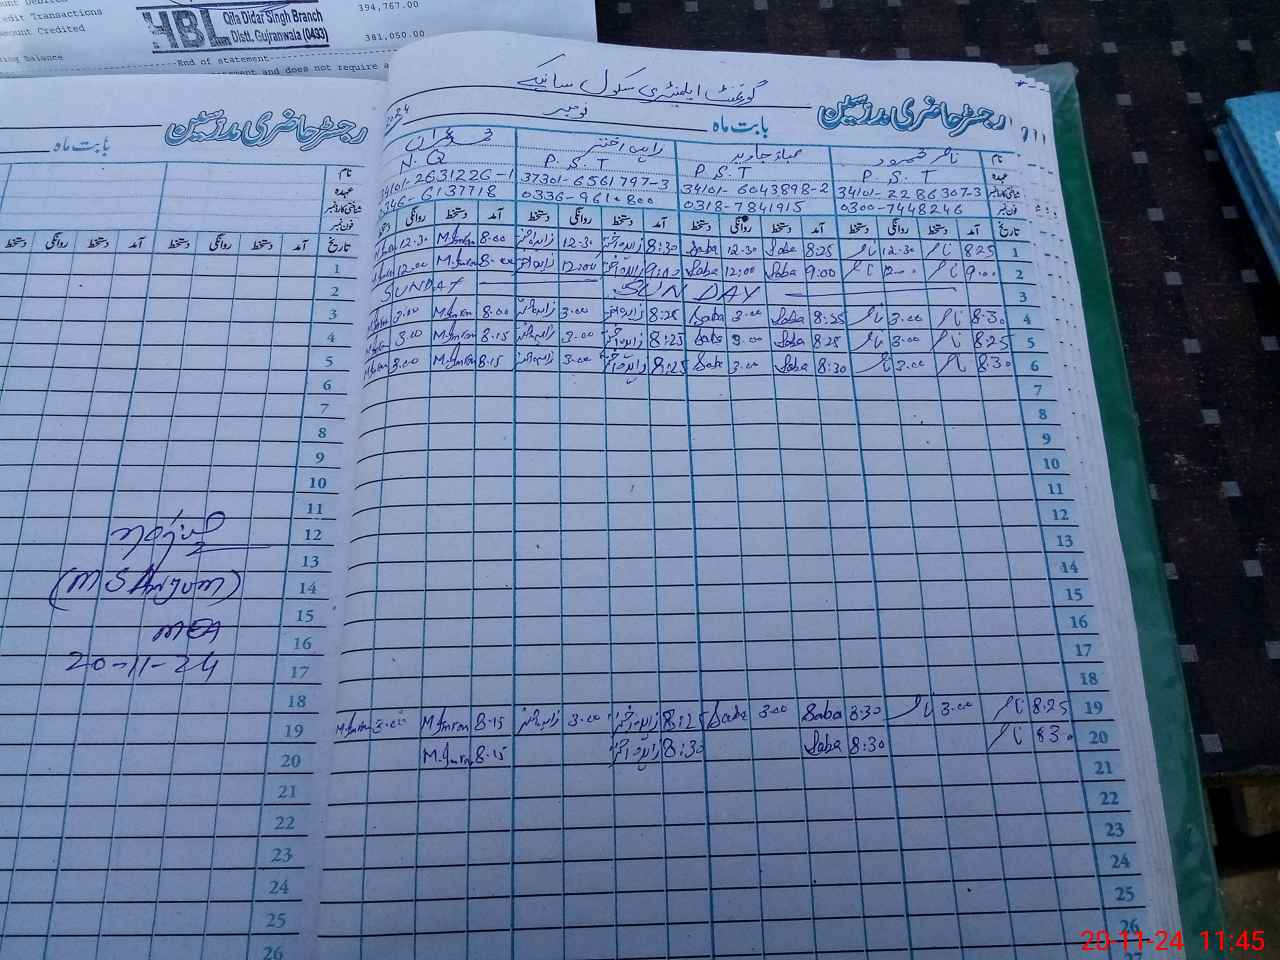 394,767.00
edit Transactions
HBL
Qila Didar Singh Branch
Distt. Gujranwala (0433)
mount Credited
381,050.00
ing balance
End of statement
and does not require a
گورنمنٹ ایلیمنٹری سکول سائیکے
رجسٹر حاضری مدرسین
بابت ماہ نومبر
نام ناصر محمود صباء جاوید زاہدہ اختر محمد عمران
عہدہ P.S.T P.S.T P.S.T N.Q
34101-2286307-3 34101-6043898-2 37301-6561797-3 34101-2631226-1
فون نمبر 0300-7448246 0318-7841915 0336-9610800 346-6137718
تاریخ آمد دستخط روانگی دستخط آمد دستخط روانگی دستخط آمد دستخط روانگی دستخط آمد دستخط روانگی
1 8:25 ناصر 12.30 ناصر 8:25 Saba 12.30 Saba 8:30 زاہدہ اختر 12.30 زاہدہ اختر 8.00 M.Imran 12.30
2 9:00 ناصر 12:00 ناصر 9:00 Saba 12:00 Saba 9:00 زاہدہ اختر 12:00 زاہدہ اختر 8.00 M.Imran 12.00
3 SUNDAY SUNDAY
4 8:30 ناصر 3.00 ناصر 8:25 Saba 3.00 Saba 8:25 زاہدہ اختر 3.00 زاہدہ اختر 8.00 M.Imran 3.00
5 8:25 ناصر 3.00 ناصر 8:25 Saba 3.00 Saba 8:25 زاہدہ اختر 3.00 زاہدہ اختر 8.15 M.Imran 3.00
6 8:30 ناصر 3.00 ناصر 8:30 Saba 3.00 Saba 8:25 زاہدہ اختر 3.00 زاہدہ اختر 8.15 M.Imran 3.00 M.Imran
7
8
9
10
11
12
13
14
15
16
17
18
19 8:25 ناصر 3.00 ناصر 8:30 Saba 3.00 Saba 8:25 زاہدہ اختر 3.00 زاہدہ اختر 8.15 M.Imran 3.00 M.Imran
20 8:30 ناصر 8:30 Saba 8:30 زاہدہ اختر 8.15 M.Imran
21
22
23
24
25
26
27
رجسٹر حاضری مدرسین
بابت ماہ
نام
عہدہ
فون نمبر
تاریخ آمد دستخط روانگی دستخط آمد دستخط روانگی دستخط
1
2
3
4
5
6
7
8
9
10
11
12
13
(M S Anjum)
14
15
MEA
16
20-11-24
17
18
19
20
21
22
23
24
25
26
20-11-24 11:45